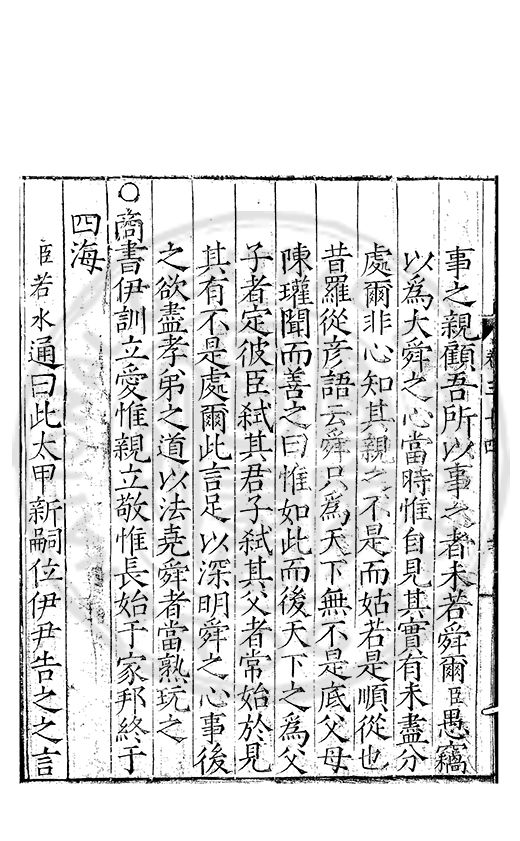 事之親顧吾所以事之者未若舜爾臣愚竊
以為大舜之心當時惟自見其實有未盡分
處爾非心知其親之不是而姑若是順從也
昔羅從彦語云舜只為天下無不是底父母
陳瓘聞而善之曰惟如此而後天下之為父
子者定彼臣弑其君子弑其父者常始於見
其有不是處爾此言足以深明舜之心事後
之欲盡孝弟之道以法堯舜者當熟玩之
○商書伊訓立愛惟親立敬惟長始于家邦終于
四海
臣若水通曰此太甲新嗣位伊尹告之之言